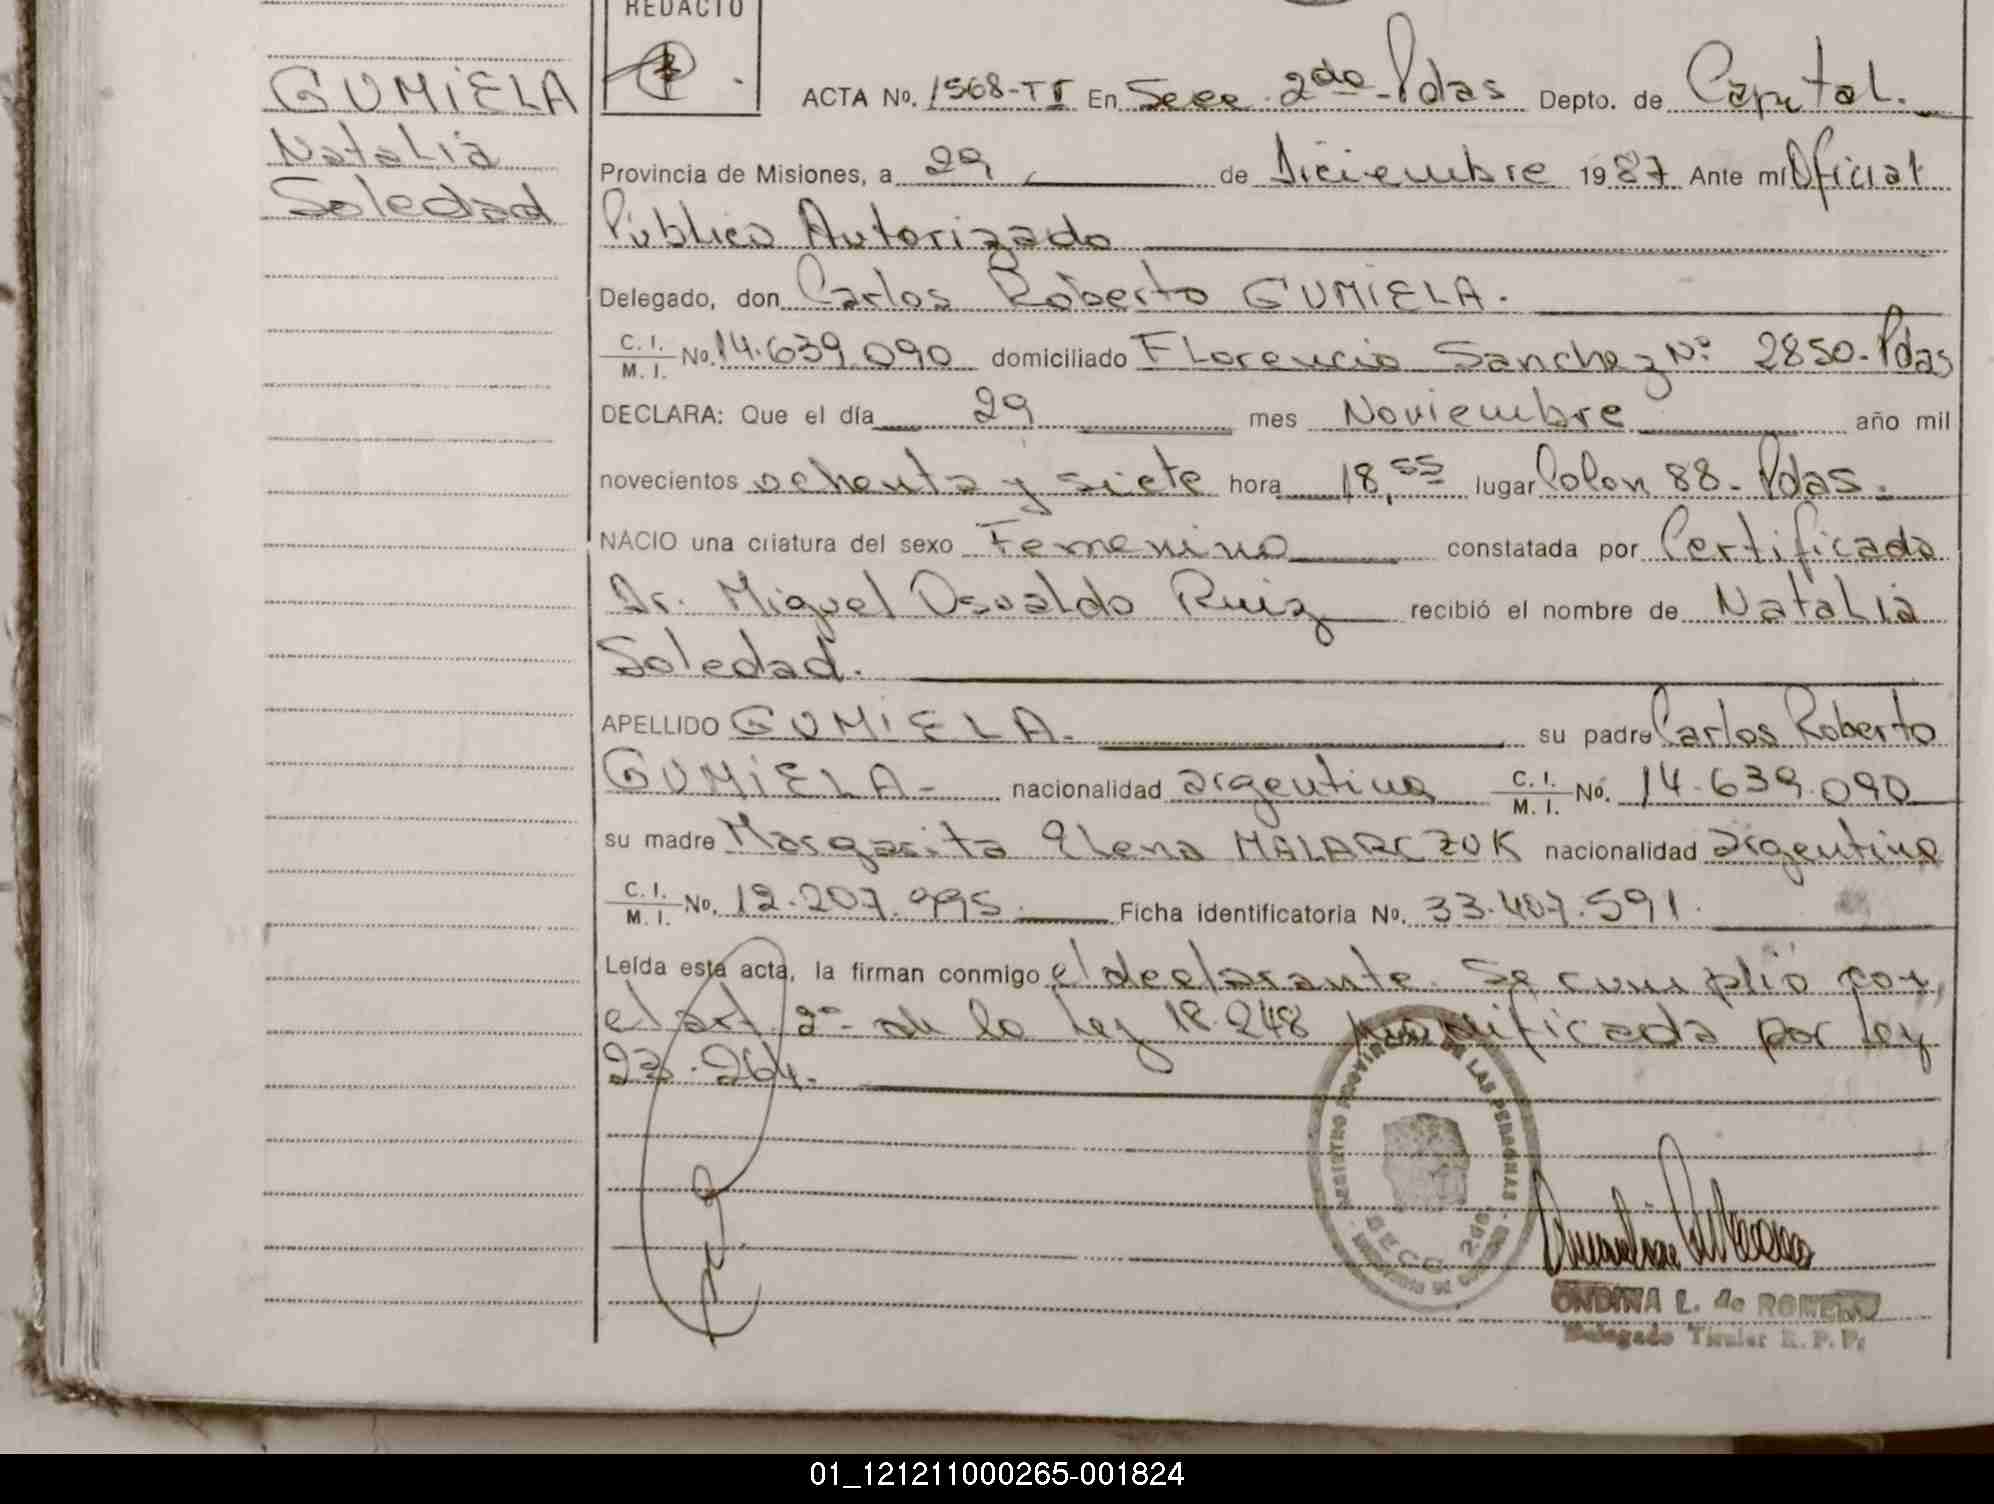 REDACTO
GUMiELA
Natalia
Soledad
ACTA No. 1568-TI En Secc. 2do-Pdas Depto. de Capital.
Provincia de Misiones, a 29 de Diciembre 1987 Ante mí Oficial
Público Autorizado
Delegado, don Carlos Roberto GUMIELA.
C. I. / M. I. No. 14.639.090 domiciliado Florencio Sanchez Nº 2850-Pdas
DECLARA: Que el día 29 mes Noviembre año mil
novecientos ochenta y siete hora 18,55 lugar Colon 88-Pdas.
NACIO una criatura del sexo Femenino constatada por Certificado
Dr. Miguel Osvaldo Ruiz recibió el nombre de Natalia
Soledad.
APELLIDO GUMiELA. su padre Carlos Roberto
GUMiELA- nacionalidad argentina C. I. / M. I. No. 14.639.090
su madre Margarita Elena MALARCZUK nacionalidad argentina
C. I. / M. I. No. 12.207.995. Ficha identificatoria No. 33.407.591.
Leída esta acta, la firman conmigo el declarante. Se cumplió con
el art 2º de la ley 18.248 modificada por ley
23.264.
REGISTRO PROVINCIAL DE LAS PERSONAS
SECC. 2da.
ONDINA L. de ROMERO
Delegado Titular R. P. P.
01_121211000265-001824